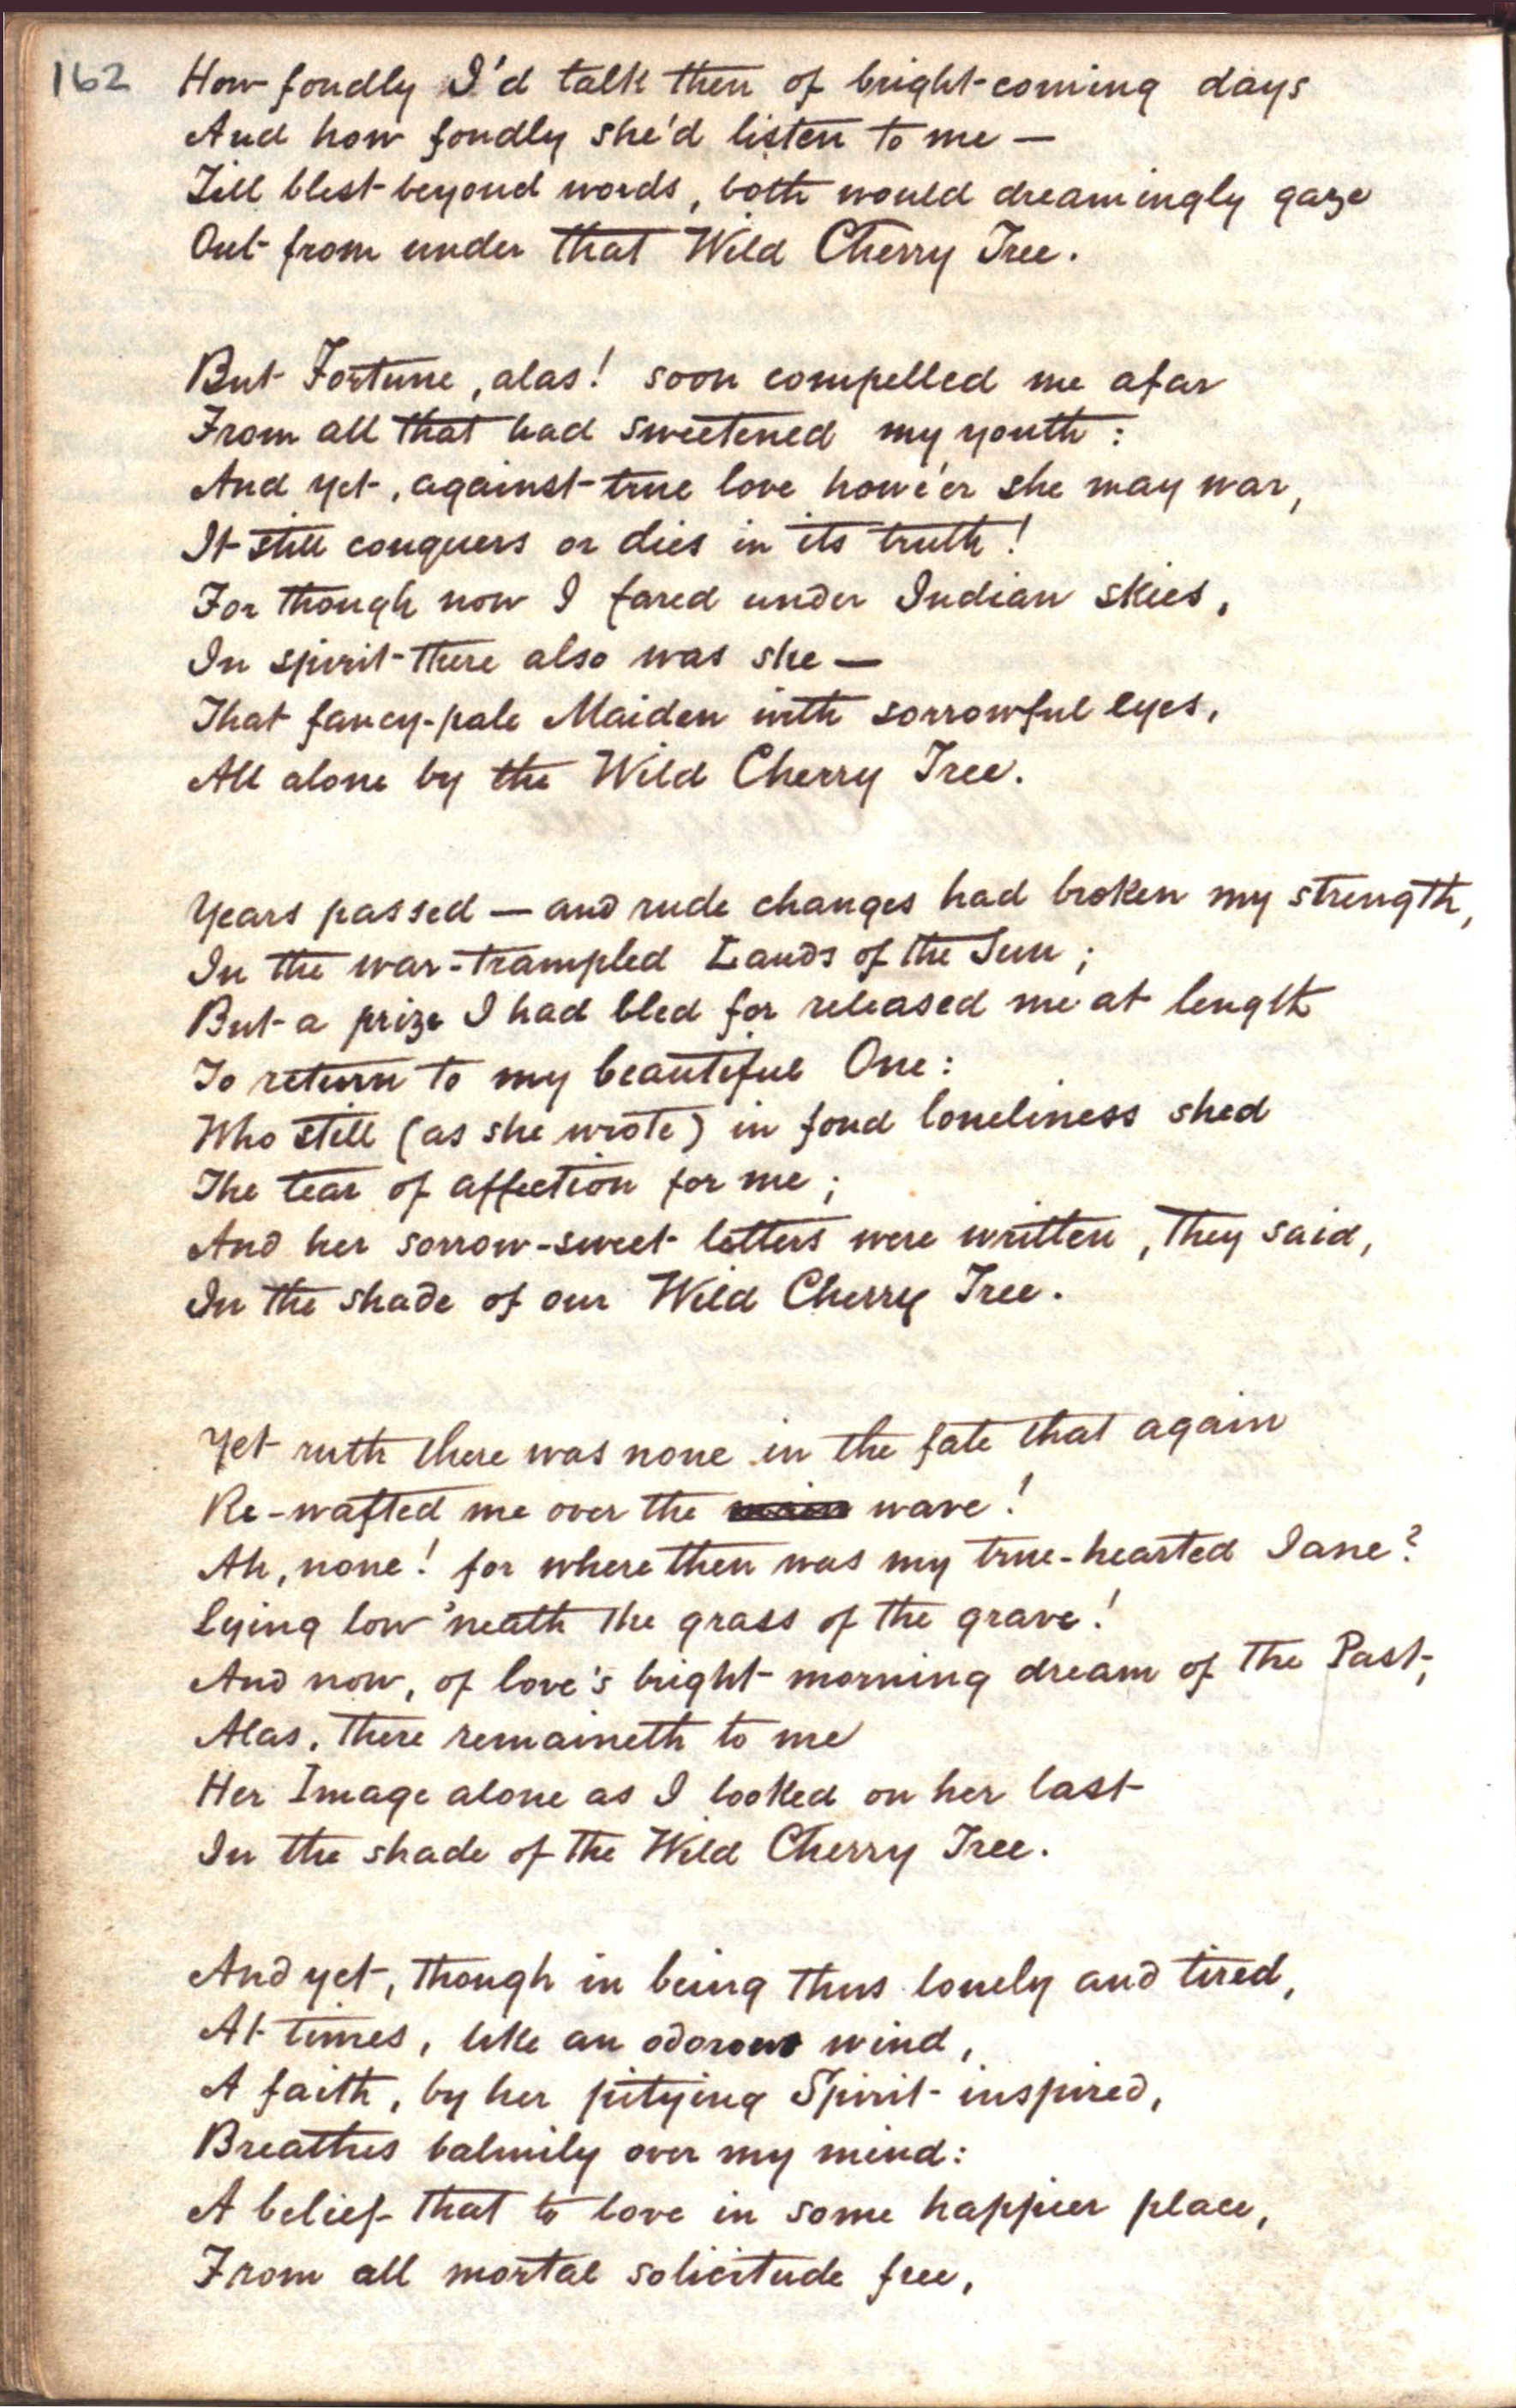 162
How fondly I'd talk then of bright-coming days
And how fondly she'd listen to me —
Till blest beyond words, both would dreamingly gaze
Out from under that Wild Cherry Tree.
But Fortune, alas! soon compelled me afar
From all that had sweetened my youth:
And yet, against true love howe'er she may war,
It still conquers or dies in its truth!
For though now I fared under Indian skies,
In spirit there also was she —
That fancy-pale Maiden with sorrowful eyes,
All alone by the Wild Cherry Tree.
Years passed — and rude changes had broken my strength,
In the war-trampled Lands of the Sun;
But a prize I had bled for released me at length
To return to my beautiful One:
Who still (as she wrote) in fond loneliness shed
The tear of affection for me;
And her sorrow-sweet letters were written, they said,
In the shade of our Wild Cherry Tree.
Yet ruth there was none in the fate that again
Re-wafted me over the main wave!
Ah, none! for where then was my true-hearted Jane?
Lying low 'neath the grass of the grave!
And now, of love's bright morning dream of the Past,
Alas, there remaineth to me
Her Image alone as I looked on her last
In the shade of the Wild Cherry Tree.
And yet, though in being thus lonely and tired,
At times, like an odorous wind,
A faith, by her pitying Spirit inspired,
Breathes balmily over my mind:
A belief that to love in some happier place,
From all mortal solicitude free,